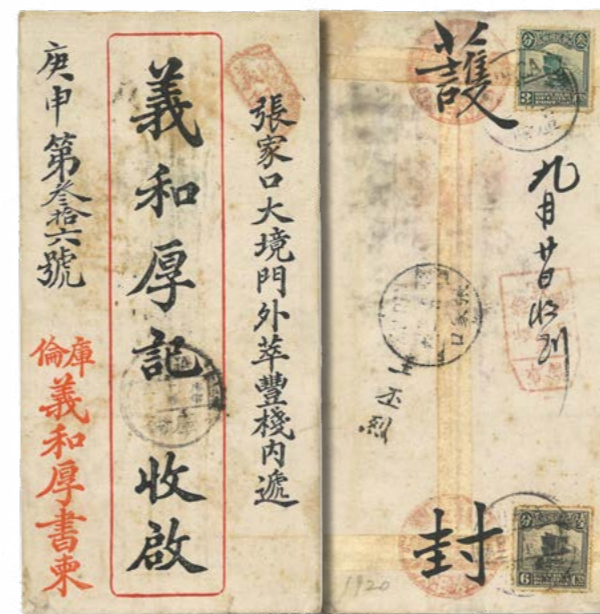 張家口大境門外萃豐棧內遞
義和厚記 收啟
庚申 第叁拾六號
庫倫
義和厚書柬
護
封
九月廿日收到
分 叁
3
分 陸
6
1920